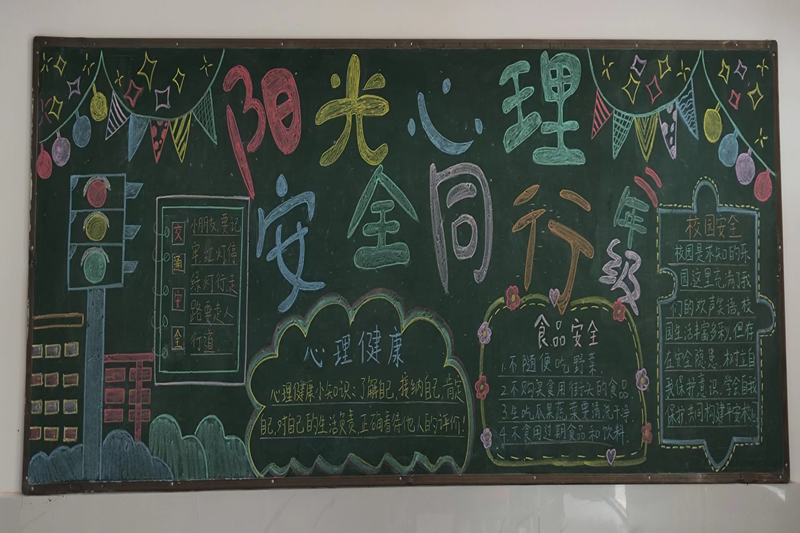 阳光心理
安全同行
二年级
交通安全
小朋友要记
牢红灯停
绿灯行走
路要走人
行道
心理健康
心理健康小知识:了解自己,接纳自己,肯定
自己,对自己的生活负责,正确看待他人的评价!
食品安全
1.不随便吃野菜
2.不购买食用街头的食品
3.生吃瓜果蔬菜要清洗干净
4.不食用过期食品和饮料
校园安全
校园是求知的乐
园这里充满了我
们的欢声笑语,校
园生活丰富多彩,但存
在安全隐患,树立自
我保护意识,学会自我
保护共同构建平安校园